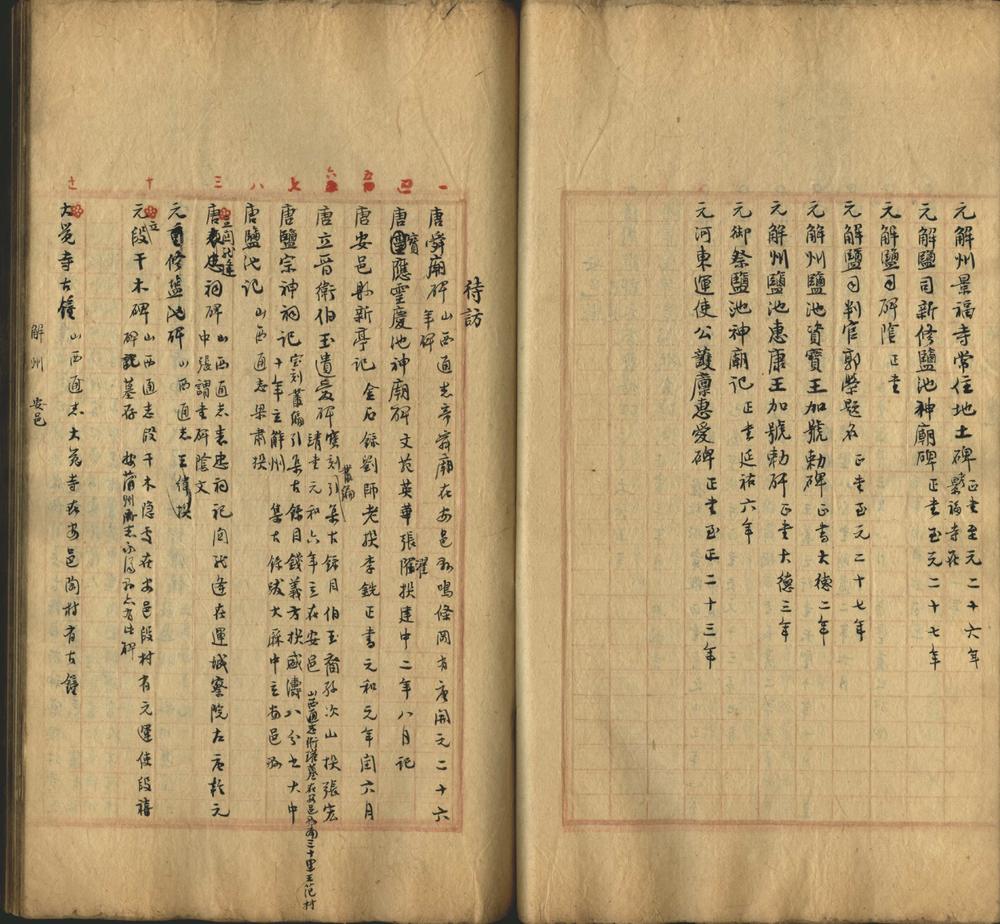 元解州景福寺常住地土碑 正書至元二十六年
景福寺在
元解鹽司新修鹽池神廟碑 正書至元二十七年
元解鹽司碑陰 正書
元解鹽司判官郭榮題名 正書至元二十七年
元解州鹽池資寶王加號勅碑 正書大德二年
元解州鹽池惠康王加號勅碑 正書大德三年
元御祭鹽池神廟記 正書延祐六年
元河東運使公護廩惠愛碑 正書至正二十三年
待訪
一
唐舜廟碑 山西通志帝舜廟在安邑縣鳴條岡有唐開元二十六
年碑
二
唐寶應靈慶池神廟碑 文苑英華張濯撰建中二年八月記
五
唐安邑縣新亭記 金石錄劉師老撰李銑正書元和元年閏六月
六
唐立晉衛伯玉遺愛碑 寶刻叢編引集古錄目伯玉裔孫次山撰張宏
靖書元和六年立在安邑 山西通志衛瓘墓在安邑西南三十里王范村
七
唐鹽宗神祠記 寶刻叢編引集古錄目錢義方撰盛濤八分書大中
十年立解州 集古錄跋大中立安邑
八
唐鹽池記 山西通志梁肅撰
三
唐關龍逢祠碑 山西通志表忠祠祀關龍逢在運城察院左唐
中張謂書碑陰文
元重修鹽池碑 山西通志王緯撰
十
元立段干木碑 山西通志段干木隐處在安邑段村有元運使段禧
碑記墓存 按蒲州府志
大覺寺古鐘 山西通志大覺寺在安邑陶村有古鐘
解州 安邑